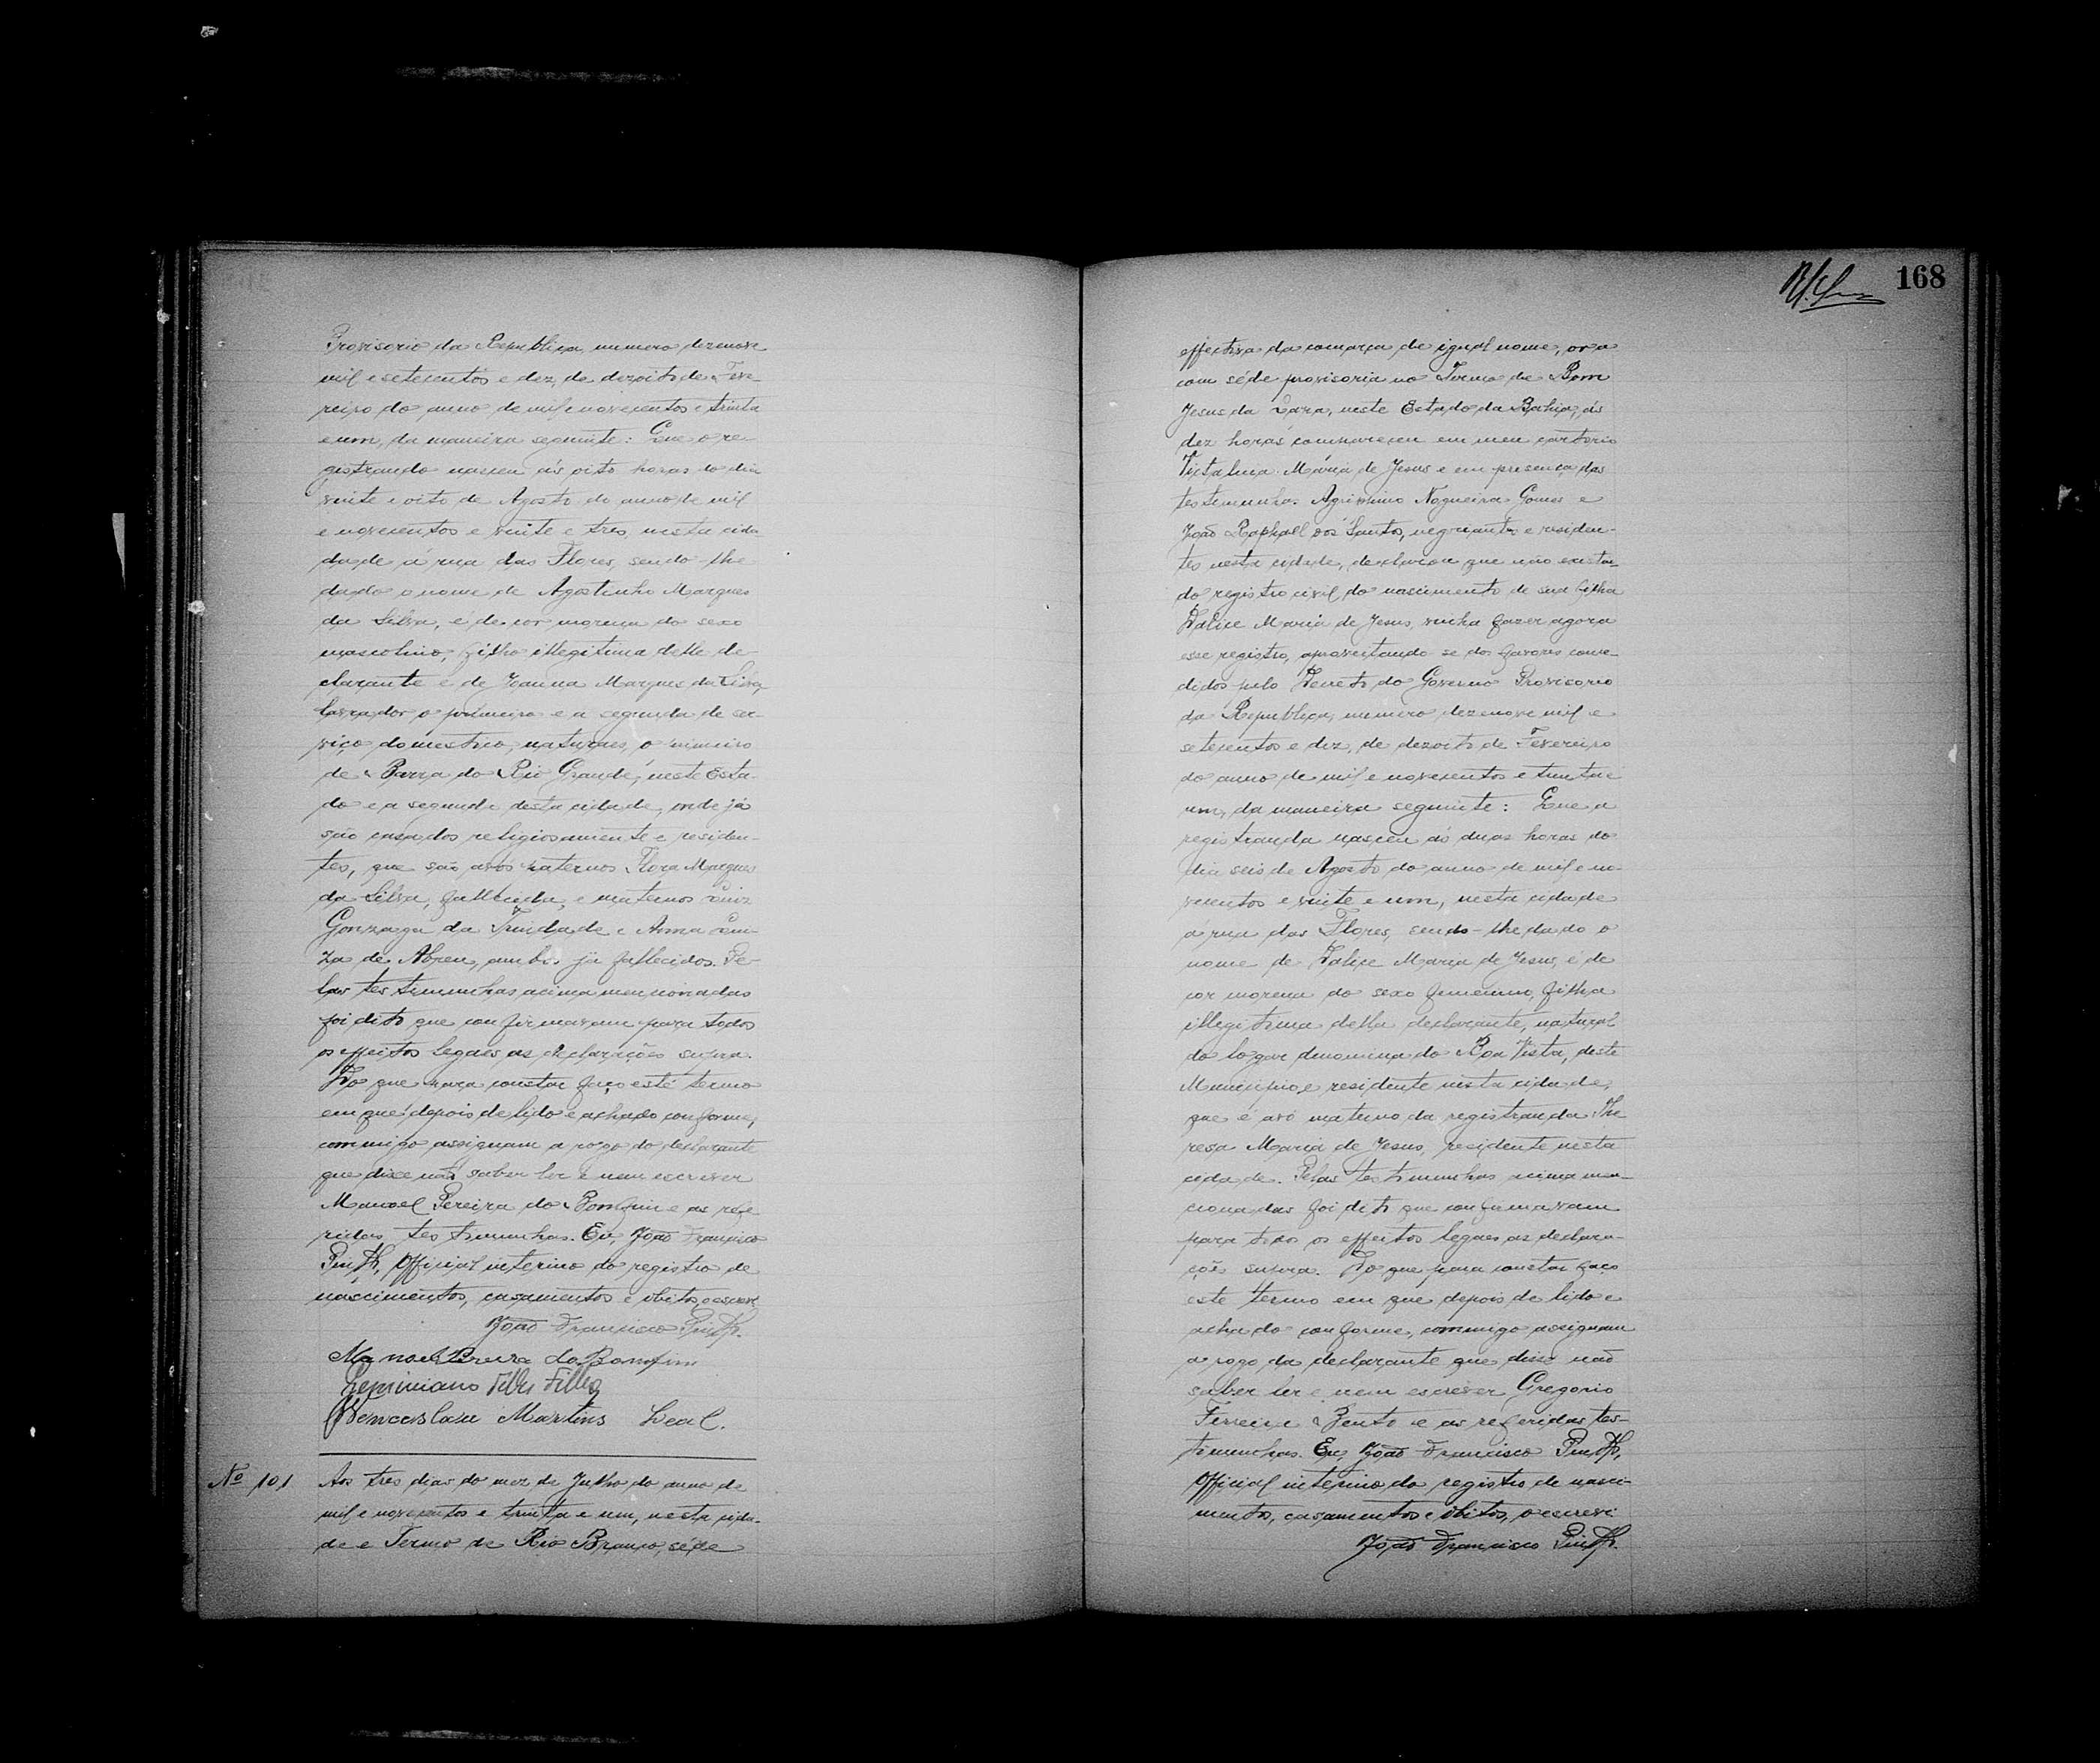 Provisorio da Republica, numero dezenove
mil e setecentos e dez, de dezoito de Feve-
reiro do anno de mil e novecentos e trinta
e um, da maneira seguinte: Que o re-
gistrando nasceu ás oito horas do dia
vinte e oito de Agosto do anno de mil
e novecentos e vinte e tres, nesta cida-
dade á rua das Flores, sendo-lhe
dado o nome de Agostinho Marques
da Silva, é de cor morena do sexo
masculino, filho illegitimo delle de-
clarante e de Joanna Marques da Silva,
lavrador o primeiro e a segunda de ser-
viço domestico, naturaes, o primeiro
de Barra do Rio Grande, neste Esta-
do e a segunda desta cidade, onde já
são casados religiosamente e residen-
tes, que são avós paternos Flora Marques
da Silva, fallecida, e maternos Luiz
Gonzaga da Trindade e Anna Lui-
za de Abreu, ambos já fallecidos. Pe-
las testimunhas acima mencionadas
foi dito que confirmavam para todos
os effeitos legaes as declarações supra.
Do que para constar faço este termo
em que depois de lido e achado conforme,
commigo assignam a rogo do declarante
que disse não saber ler e nem escrever
Manoel Pereira do Bomfim e as refe-
ridas testimunhas. Eu, João Francisco
Official interino do registro de
nascimentos, casamentos e obitos, o escrevi
João Francisco
Manoel Pereira do Bomfim
Filho
Wenceslau Martins Leal.
Nº 101
Aos tres dias do mez de Julho do anno de
mil e novecentos e trinta e um, nesta cida-
de e Termo de Rio Branco, séde
168
effectiva da comarca de igual nome, ora
com séde provisoria no Termo de Bom
Jesus da Lapa, neste Estado da Bahia, ás
dez horas compareceu em meu cartorio
Victalina Maria de Jesus e em presença das
testimunhas Nogueira Gomes e
João Raphael dos Santos, negociantes e residen-
tes nesta cidade, declarou que não existin-
do registro civil do nascimento de sua filha
Dalice Maria de Jesus, vinha fazer agora
esse registro, aproveitando-se dos favores conce-
didos pelo Decreto do Governo Provisorio
da Republica, numero dezenove mil e
setecentos e dez, de dezoito de Fevereiro
do anno de mil e novecentos e trinta e
um, da maneira seguinte: Que a
registranda nasceu ás duas horas do
dia seis de Agosto do anno de mil e no-
vecentos e vinte e um, nesta cidade
á rua das Flores, sendo-lhe dado o
nome de Dalice Maria de Jesus, é de
cor morena do sexo femenino, filha
illegitima della declarante, natural
do logar denominado Boa Vista, deste
Municipio e residente nesta cidade,
que é avó materna da registranda The-
resa Maria de Jesus, residente nesta
cidade. Pelas testimunhas acima men-
cionadas foi dito que confirmavam
para todos os effeitos legaes as declara-
ções supra. Do que para constar faço
este termo em que depois de lido e
achado conforme, commigo assignam
a rogo da declarante que disse não
saber ler e nem escrever Gregorio
Ferreira Bento e as referidas tes-
timunhas. Eu, João Francisco
Official interino do registro de nasci-
mentos, casamentos e obitos, o escrevi
João Francisco